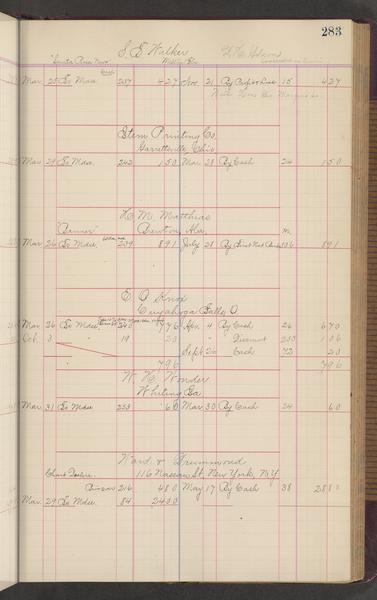 283
S. E. Walker
Mar. 25 To Mdse 237 4 27 Nov. 21 By Profit & Loss 15 4 27
Stem Printing Co.
Garrettsville, Ohio
Mar 29 To Mdse. 242 1 50 Mar. 28 By Cash 24 1 50
H. M. Matthias
"Banner" Brewton, Ala.
Mar. 26 To Mdse 239 8 91 July 28 By First Nat Bank 106 8 91
E. O. Knox
Cuyahoga Falls O
Mar. 26 To Mdse. 240 7 76 Apr. 4 By Cash 26 6 70
Feb. 3 " 19 20 " " Discount 253 1 06
Sept. 26 Cash 72 20
7 96 7 96
W. H. Wonder
Whiting, Ga
Mar. 31 To Mdse 253 60 Mar. 30 By Cash 24 60
Ward & Drummond
116 Nassau St, New York, N.Y.
216 4 80 May 17 By Cash 38 28 80
Mar. 29 To Mdse. 84 24 00